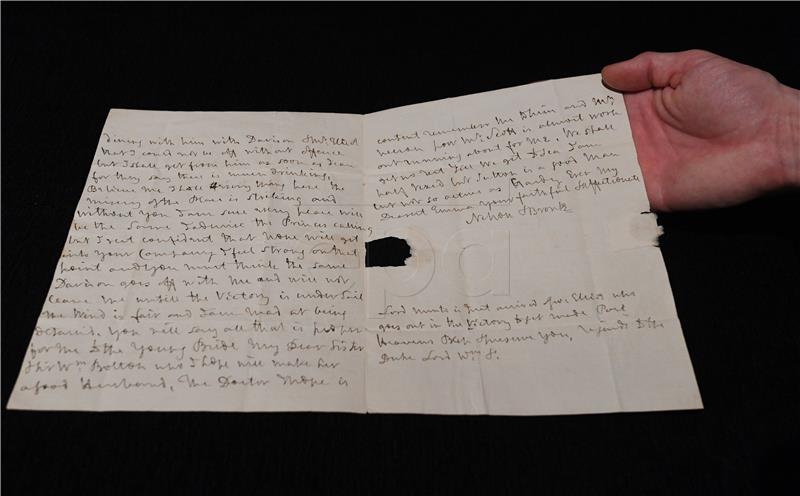 dining with him with Davison &
that I could not be off without offence
but I shall get from him as soon as I can
for they say there is much drinking,
Believe me I hate every thing here the
misery of the Place is striking and
without you I am sure every place will
be the same I admire the Princes calling
but I rest confident that None will get
into your Company I feel strong on that
point and you must think the same
Davison goes off with me and will not
leave me untill the Victory is under sail
the Wind is fair and I am mad at being
detained. You will say all that is proper
for me to the Young Bride My Dear Sister
Sir Wm Bolton who I hope will make her
a good Husband, The Doctor I hope is
content remember me to him and Mrs
poor Mr Scott is almost work
out running about for me, We shall
get no rest till we get to Sea I am
half tired but Sutton is a good Man
but not so active as Hardy Ever My
Dearest Emma your faithful & affectionate
Nelson & Bronte
Lord Minto is just arrived & Geo: Elliot who
goes out in the Victory to get made Post
Heavens Bless & preserve you, regards to the
Duke Lord Wm &c.
pd